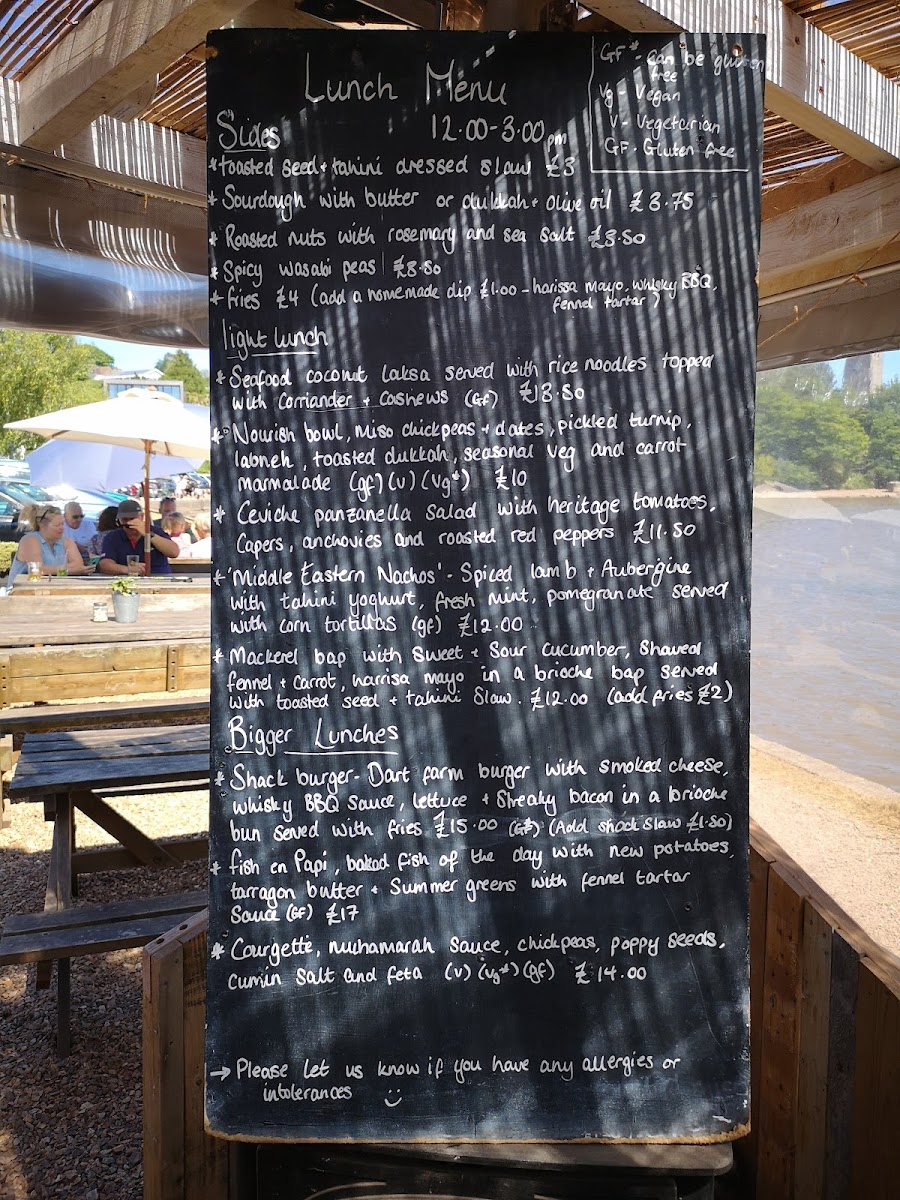 Lunch Menu
12.00-3.00pm
GF* - can be gluten
free
Vg - Vegan
V - Vegetarian
GF - Gluten free
Sides
* toasted seed + tahini dressed slaw £3
* Sourdough with butter or dukkah + olive oil £3.75
* Roasted nuts with rosemary and sea salt £3.50
* Spicy wasabi peas £3.50
* fries £4 (add a homemade dip £1.00 - harissa mayo, whisky BBQ,
fennel tartar)
light lunch
* Seafood coconut Laksa served with rice noodles topped
with Corriander + Cashews (GF) £13.50
* Nourish bowl, miso chickpeas + dates, pickled turnip,
labneh, toasted dukkah, seasonal veg and carrot
marmalade (gf) (v) (vg*) £10
* Ceviche panzanella salad with heritage tomatoes,
Capers, anchovies and roasted red peppers £11.50
* 'Middle Eastern Nachos' - Spiced lamb + Aubergine
with tahini yoghurt, fresh mint, pomegranate served
with corn tortillas (gf) £12.00
* Mackerel bap with sweet + sour cucumber, shaved
fennel + carrot, harrisa mayo in a brioche bap served
with toasted seed + tahini slaw. £12.00 (add fries £2)
Bigger Lunches
* Shack burger - Dart farm burger with smoked cheese,
whisky BBQ sauce, lettuce + streaky bacon in a brioche
bun served with fries £15.00 (GF*) (Add shack slaw £1.50)
* fish en Papi, baked fish of the day with new potatoes,
tarragon butter + Summer greens with fennel tartar
sauce (GF) £17
* Courgette, muhamarah sauce, chickpeas, poppy seeds,
cumin salt and feta (v) (vg*) (gf) £14.00
→ Please let us know if you have any allergies or
intolerances